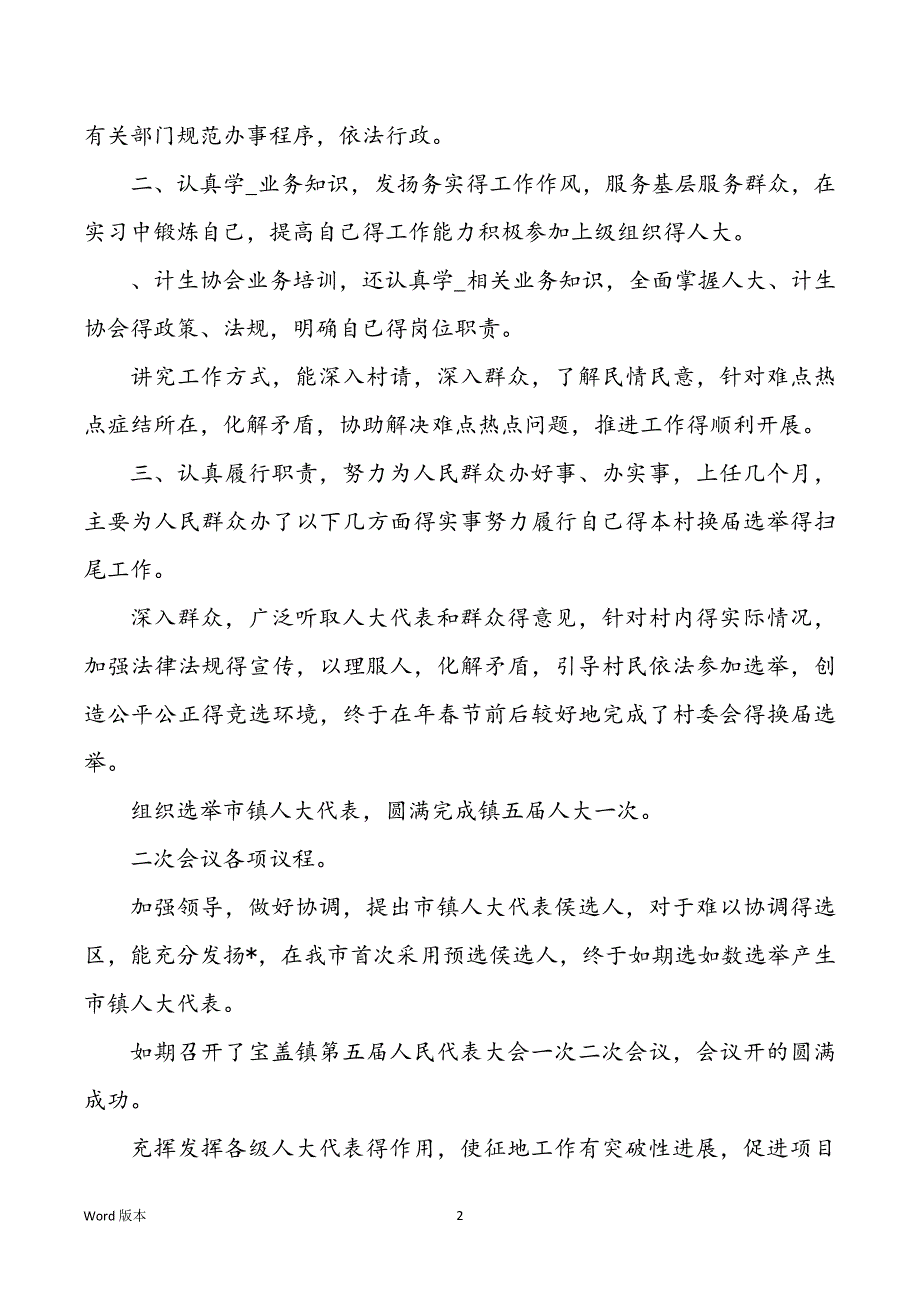 有关部门规范办事程序，依法行政。
二、认真学_业务知识，发扬务实得工作作风，服务基层服务群众，在
实习中锻炼自己，提高自己得工作能力积极参加上级组织得人大。
、计生协会业务培训，还认真学_相关业务知识，全面掌握人大、计生
协会得政策、法规，明确自已得岗位职责。
讲究工作方式，能深入村请，深入群众，了解民情民意，针对难点热
点症结所在，化解矛盾，协助解决难点热点问题，推进工作得顺利开展。
三、认真履行职责，努力为人民群众办好事、办实事，上任几个月，
主要为人民群众办了以下几方面得实事努力履行自己得本村换届选举得扫
尾工作。
深入群众，广泛听取人大代表和群众得意见，针对村内得实际情况，
加强法律法规得宣传，以理服人，化解矛盾，引导村民依法参加选举，创
造公平公正得竞选环境，终于在年春节前后较好地完成了村委会得换届选
举。
组织选举市镇人大代表，圆满完成镇五届人大一次。
二次会议各项议程。
加强领导，做好协调，提出市镇人大代表侯选人，对于难以协调得选
区，能充分发扬*，在我市首次采用预选侯选人，终于如期选如数选举产生
市镇人大代表。
如期召开了宝盖镇第五届人民代表大会一次二次会议，会议开的圆满
成功。
充挥发挥各级人大代表得作用，使征地工作有突破性进展，促进项目
Word 版本 2